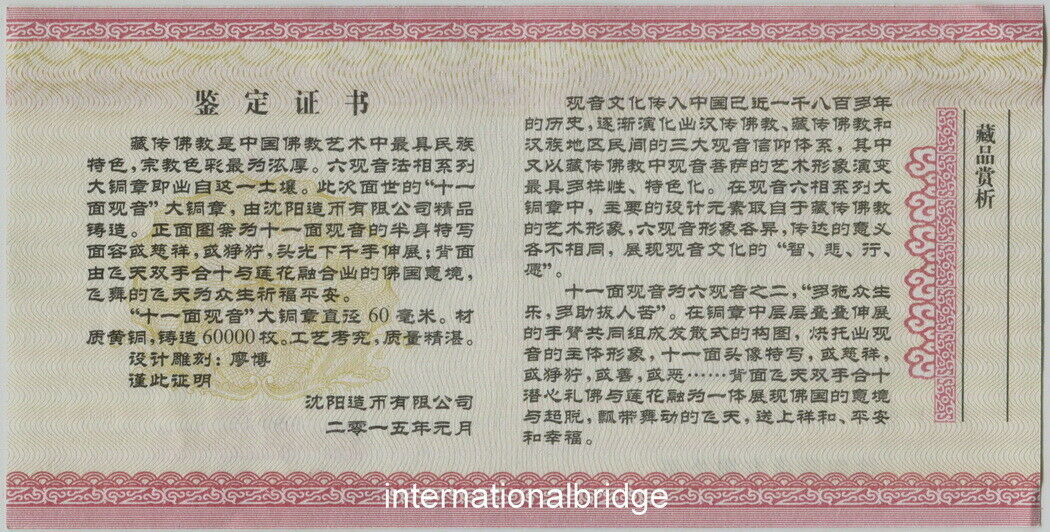 鉴定证书
藏传佛教是中国佛教艺术中最具民族
特色，宗教色彩最为浓厚。六观音法相系列
大铜章即出自这一土壤。此次面世的“十一
面观音”大铜章，由沈阳造币有限公司精品
铸造。正面图案为十一面观音的半身特写
面容或慈祥，或狰狞，头光下千手伸展；背面
由飞天双手合十与莲花融合出的佛国意境，
飞舞的飞天为众生祈福平安。
“十一面观音”大铜章直径60毫米。材
质黄铜，铸造60000枚。工艺考究，质量精湛。
设计雕刻：廖博
谨此证明
沈阳造币有限公司
二零一五年元月
观音文化传入中国已近一千八百多年
的历史，逐渐演化出汉传佛教、藏传佛教和
汉族地区民间的三大观音信仰体系，其中
又以藏传佛教中观音菩萨的艺术形象演变
最具多样性、特色化。在观音六相系列大
铜章中，主要的设计元素取自于藏传佛教
的艺术形象，六观音形象各异，传达的意义
各不相同，展现观音文化的“智、悲、行、
愿”。
十一面观音为六观音之二，“多施众生
乐，多助拔人苦”。在铜章中层层叠叠伸展
的手臂共同组成发散式的构图，烘托出观
音的主体形象，十一面头像特写，或慈祥，
或狰狞，或善，或恶……背面飞天双手合十
潜心礼佛与莲花融为一体展现佛国的意境
与超脱，飘带舞动的飞天，送上祥和、平安
和幸福。
藏品赏析
internationalbridge